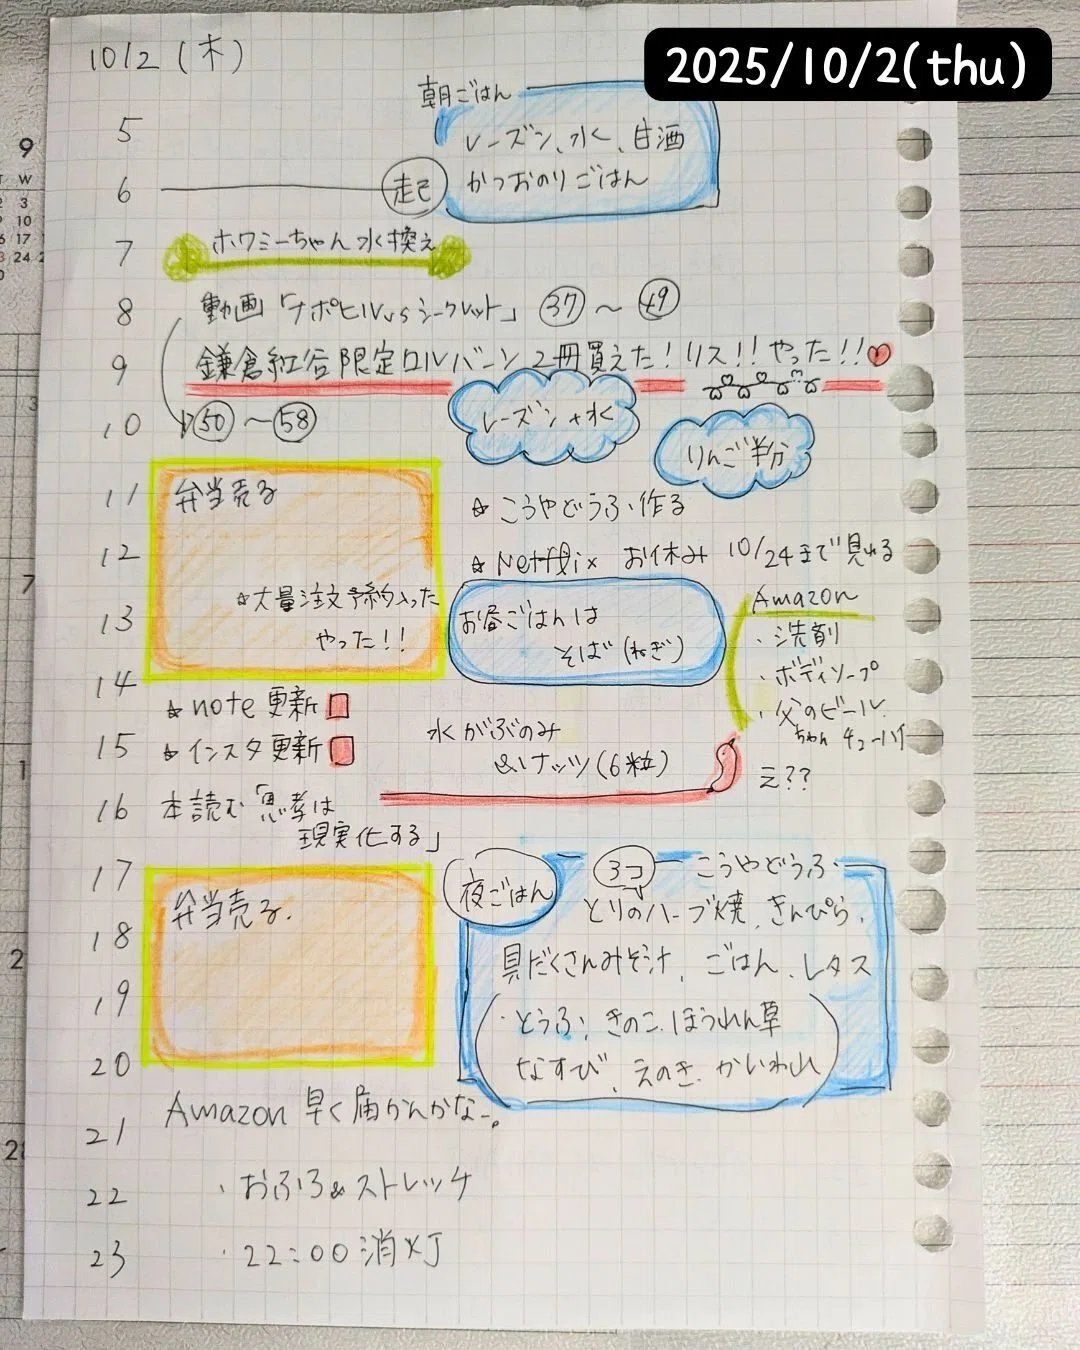 2025/10/2(thu)
10/2 (木)
朝ごはん
5
レーズン、水、甘酒
かつおのりごはん
6
起
7
ホワミーちゃん水換え
8
動画「ナポヒルvsシークレット」 37 〜 49
9
鎌倉紅谷限定ロルバーン2冊買えた！リス!!やった!!
10
50 〜 58
レーズン+水
りんご半分
11
弁当売る
☆こうやどうふ作る
12
☆Netflix お休み 10/24まで見れる
☆大量注文予約入った
やった!!
13
お昼ごはんは
そば(ねぎ)
Amazon
・洗剤
・ボディソープ
・父のビール
ちゃん チューハイ
え??
14
☆note更新
15
☆インスタ更新
水がぶのみ
&ナッツ(6粒)
16
本読む「思考は
現実化する」
17
弁当売る.
18
19
20
夜ごはん
3コ
こうやどうふ
とりのハーブ焼、きんぴら、
具だくさんみそ汁、ごはん、レタス
・とうふ、きのこ、ほうれん草
なすび、えのき、かいわれ
21
Amazon早く届かんかなー。
22
・おふろ&ストレッチ
23
・22:00消灯
9
W
3
10
17
24
7
2